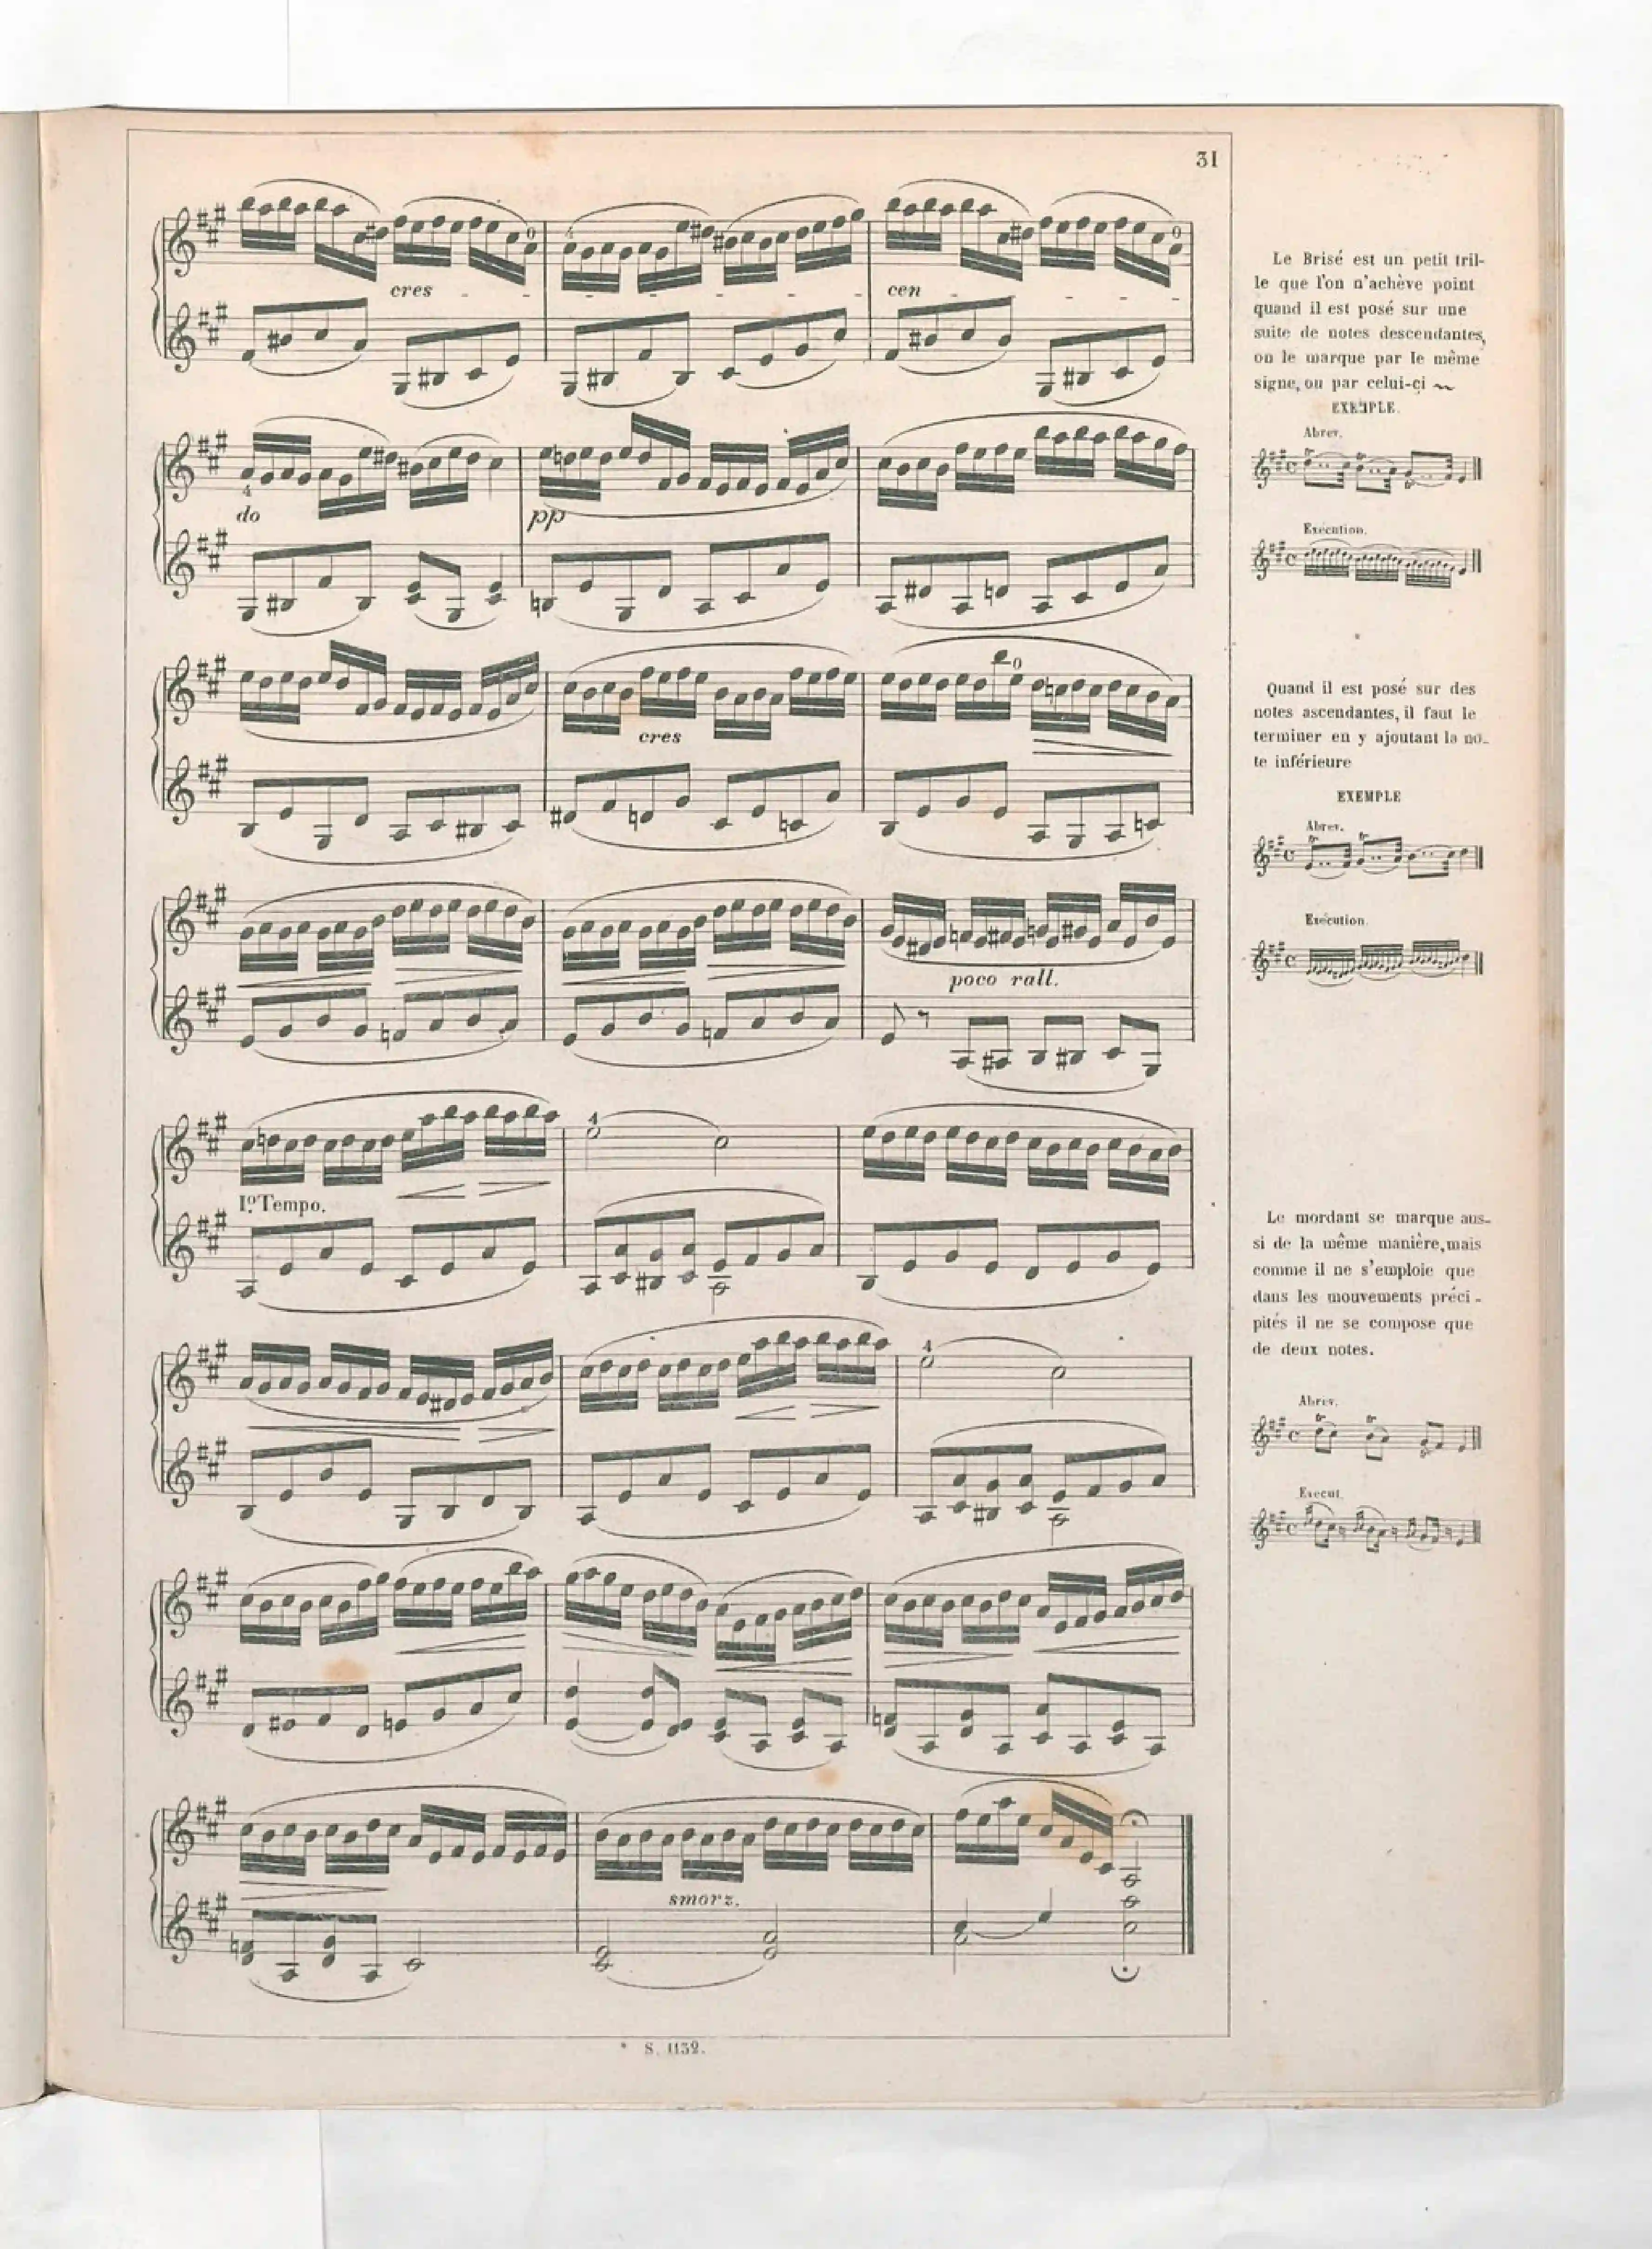 31
cres - - - - - - - cen - - - - -
do
pp
cres
poco rall.
I.º Tempo.
smorz.
S. 1132.
Le Brisé est un petit tril-
le que l'on n'achève point
quand il est posé sur une
suite de notes descendantes,
on le marque par le même
signe, ou par celui-çi
EXEMPLE.
Abrev.
Exécution.
Quand il est posé sur des
notes ascendantes, il faut le
terminer en y ajoutant la no-
te inférieure
EXEMPLE
Abrev.
Exécution
Le mordant se marque aus-
si de la même manière, mais
comme il ne s'emploie que
dans les mouvements préci-
pités il ne se compose que
de deux notes.
Abrev.
Execut.